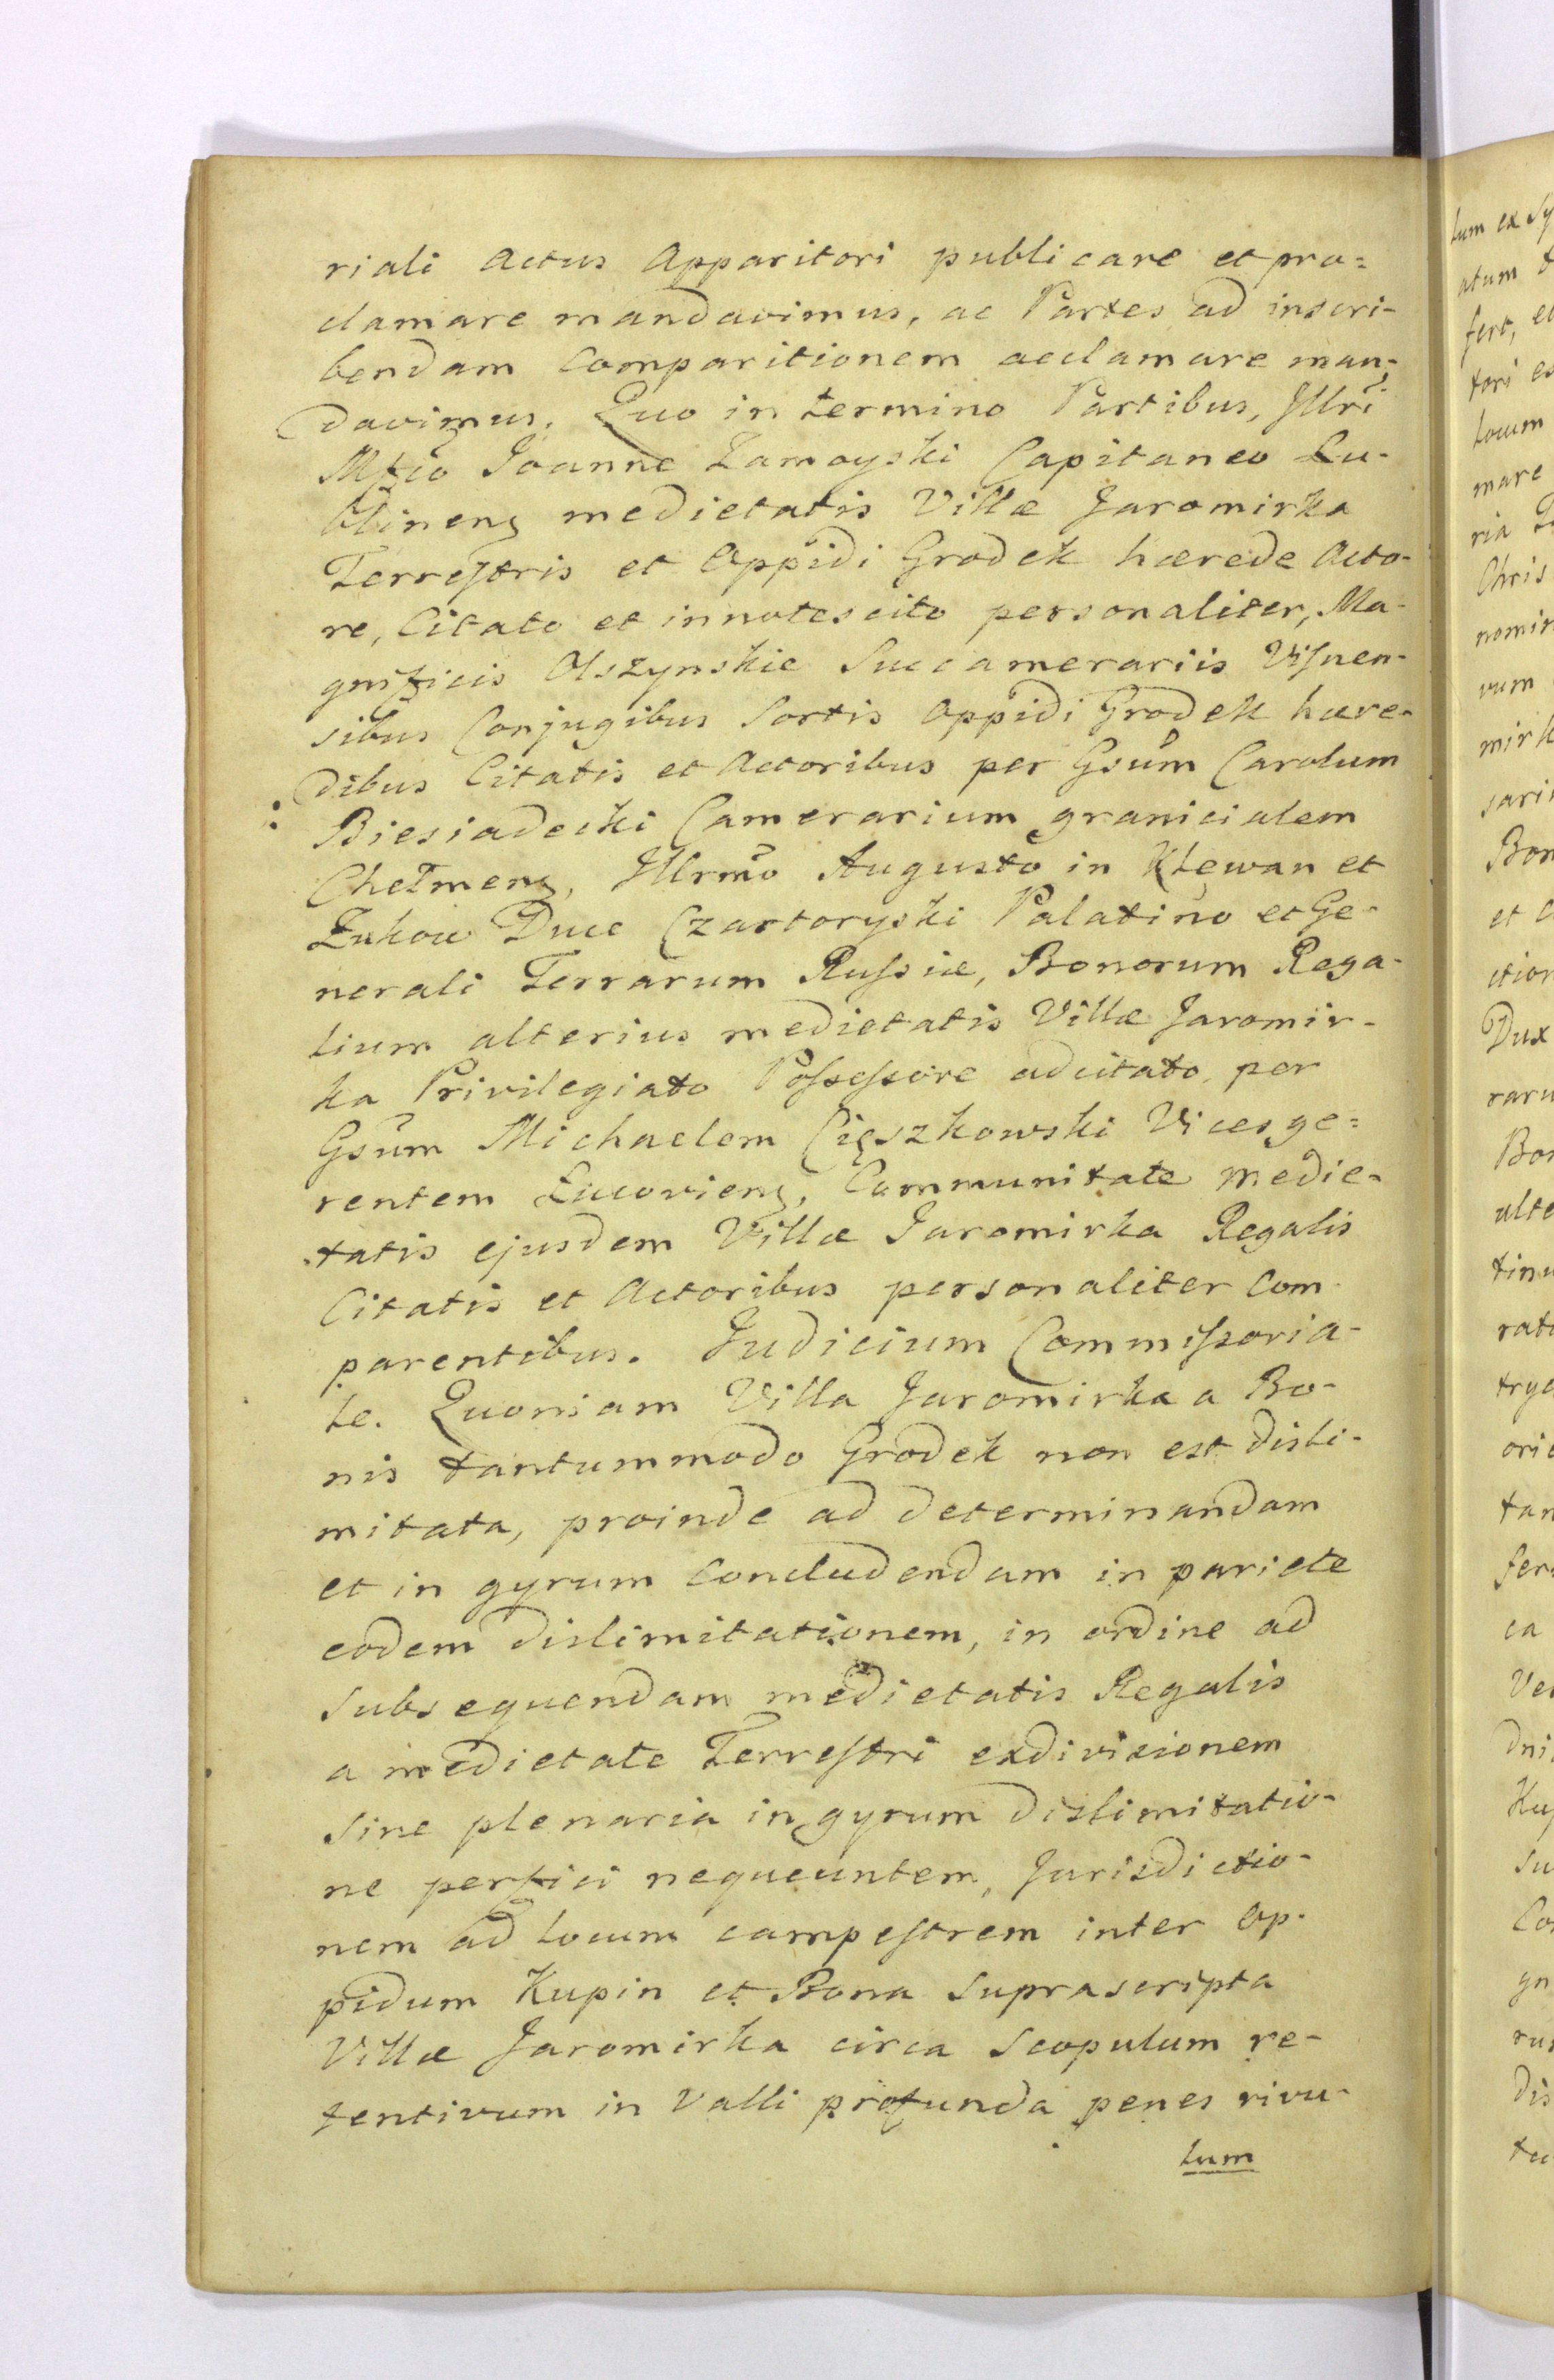 riali Actus Apparitori publicare et pro=
clamare mandavimus, ac Partes ad inscri-
bendam Comparitionem acclamare man-
davimus. Quo in termino Partibus, Jllri
Mfico Joanne Zamoyski Capitaneo Lu-
blinenς medietatis Villæ Jaromirka
Terreſtris et Oppidi Grodek hærede Acto-
re, Citato et innotescito personaliter, Ma-
gnificis Olszynskie Succamerariis Viſnen-
sibus Conjugibus Sortis Oppidi Grodek hære-
dibus Citatis et Actoribus per Gsum Carolum
Biesiadecki Camerarium granicialem
Chełmenς, Jllrmo Augusto in Klewan et
Zukow Duce Czartoryski Palatino et Ge-
nerali Terrarum Ruſsiæ, Bonorum Rega-
lium alterius medietatis Villæ Jaromir-
ka Privilegiato Poſseſsore adcitato per
Gsum Michaelem Cięszkowski Vicesge=
rentem Łucovienς, Communitate Medie-
tatis ejusdem Villæ Jaromirka Regalis
Citatis et Actoribus personaliter Com
parentibus. Judicium Commiſsoria-
le. Quoniam Villa Jaromirka a Bo-
nis tantummodo Grodek non est disli-
mitata, proinde ad determinandam
et in gyrum Concludendam in pariete
eodem dislimitationem, in ordine ad
Subsequendam medietatis Regalis
a medietate Terreſtri exdivisionem
Sine plenaria in gyrum dislimitatio-
ne perfici nequeuntem, Jurisdictio-
nem ad locum campeſtrem inter Op-
pidum Kupin et Bona Suprascripta
Villæ Jaromirka circa Scopulum re-
tentivum in Valli profunda penes rivu-
lum